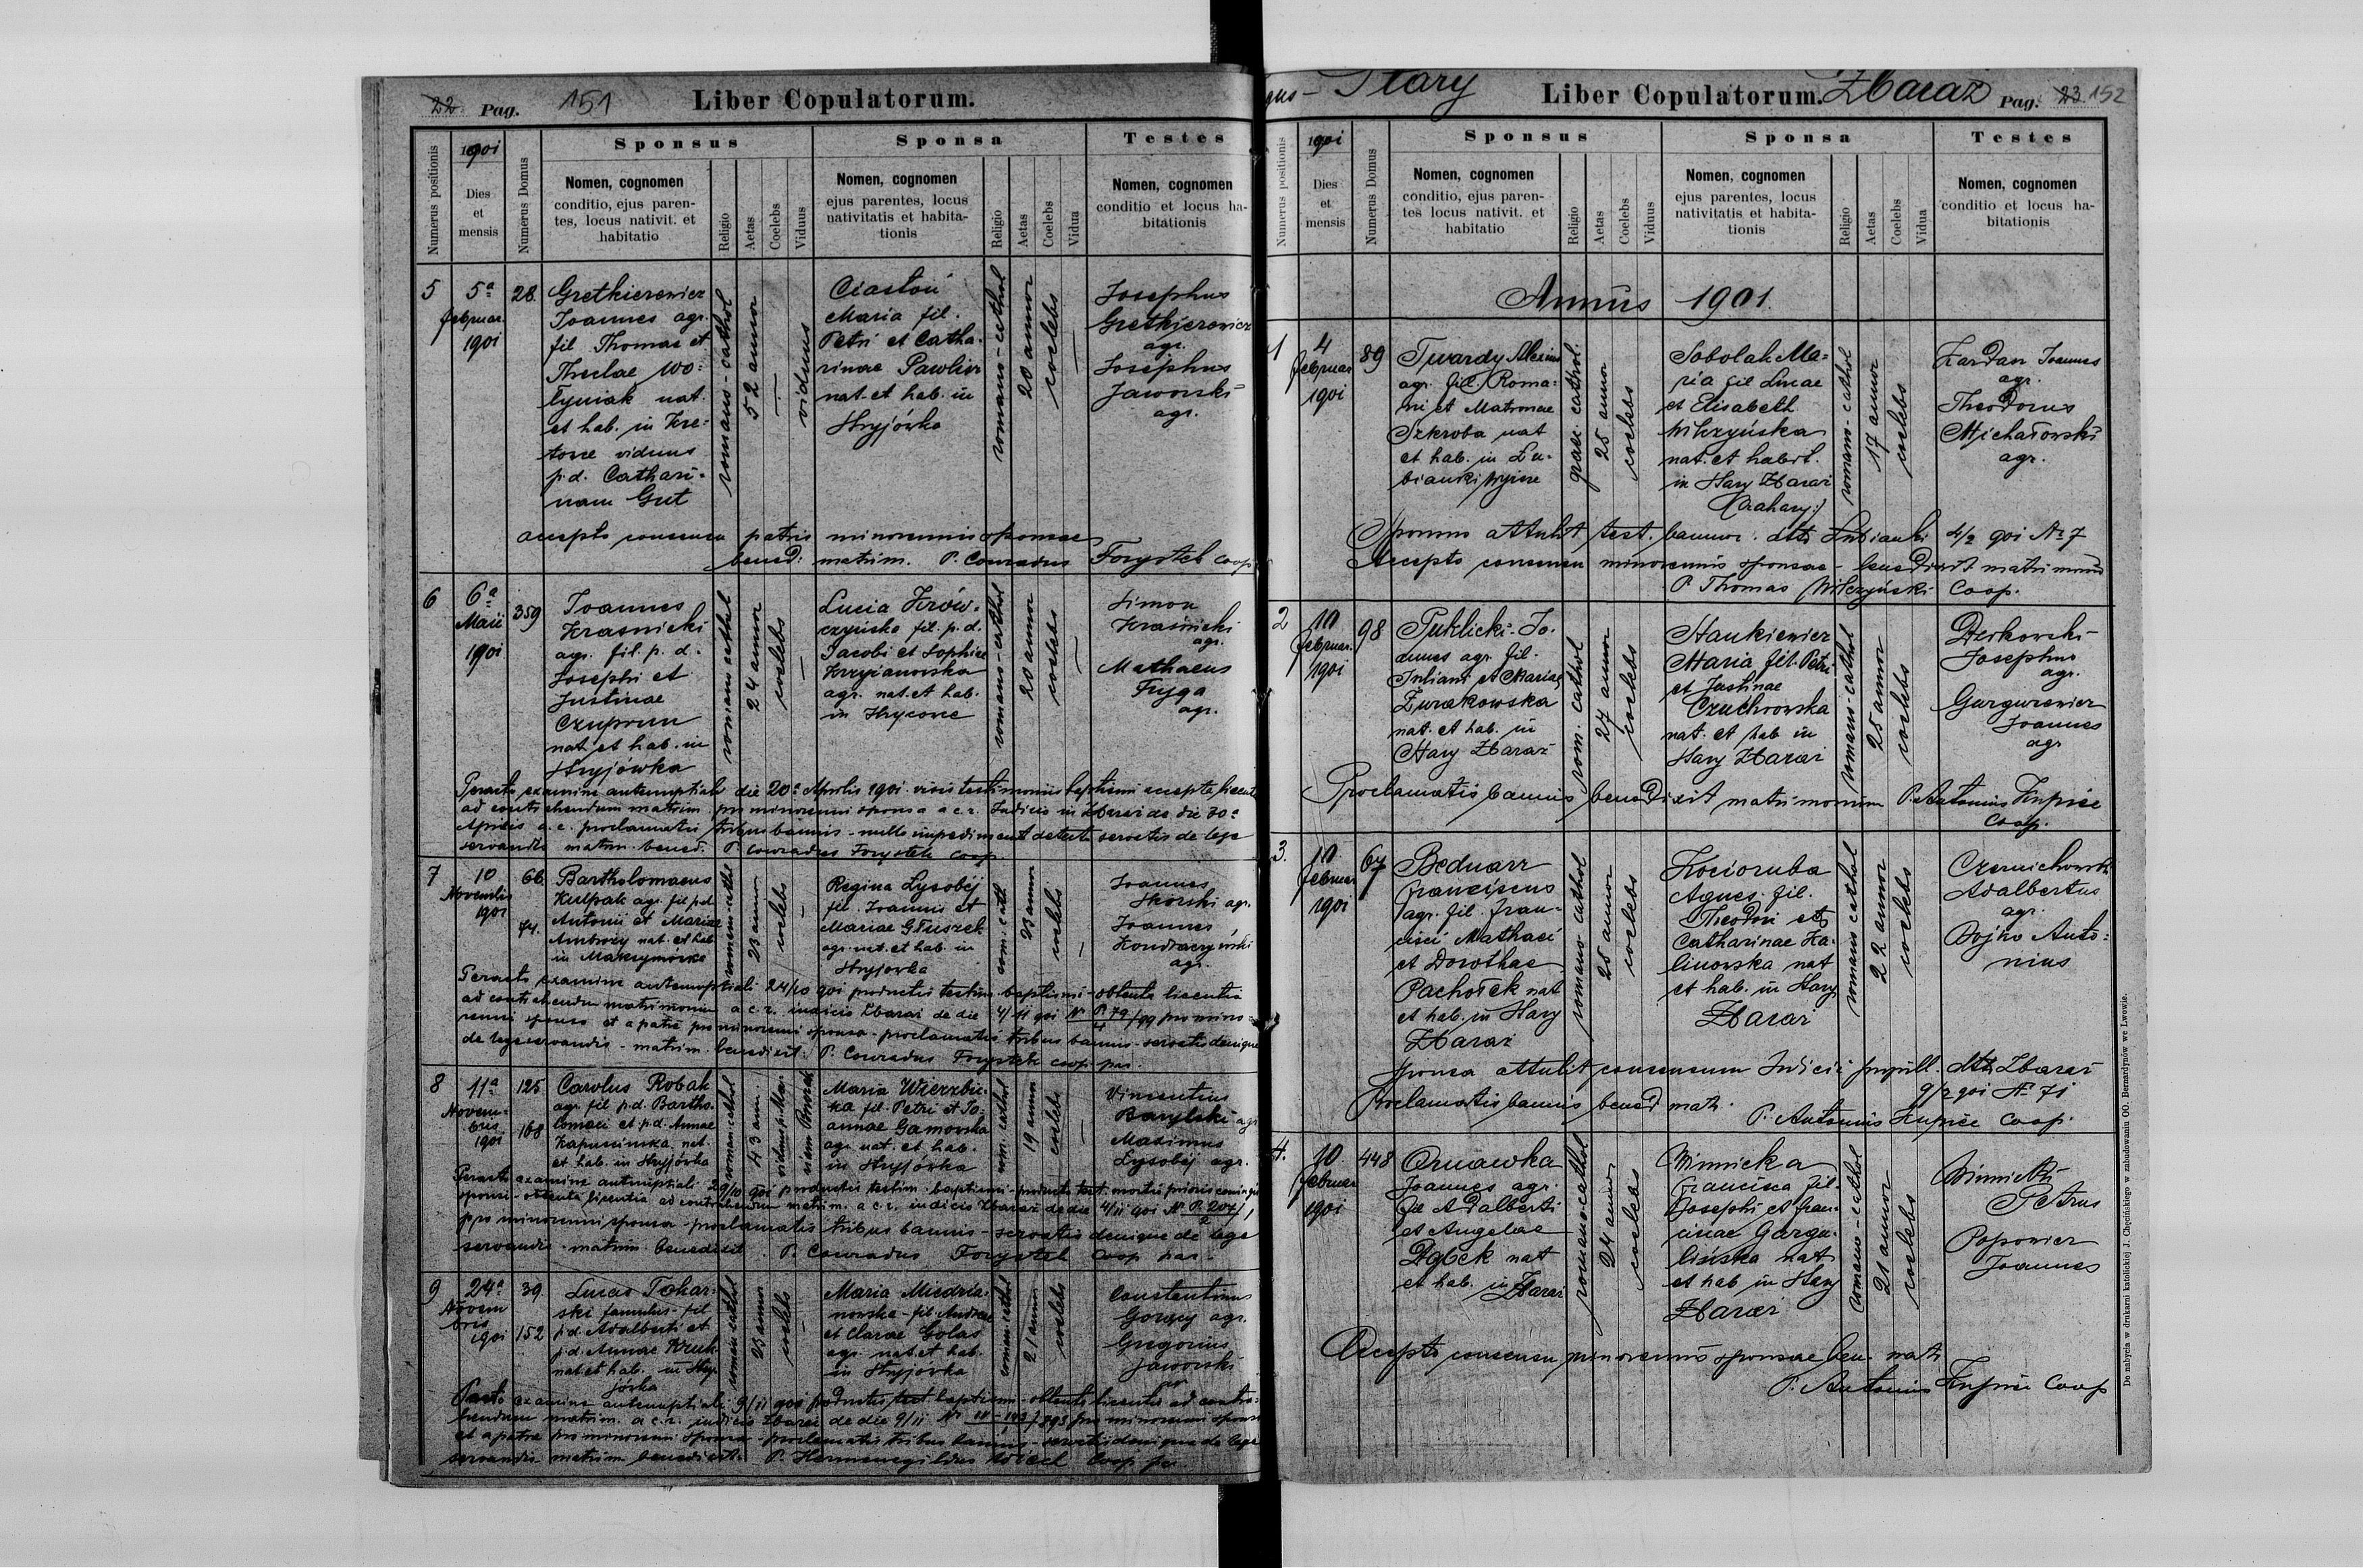 22 Pag. 151 Liber Copulatorum.
Numerus positionis
1901
Dies
et
mensis
Numerus Domus
Sponsus
Nomen, cognomen
conditio, ejus paren-
tes, locus nativit. et
habitatio
Religio
Aetas
Coelebs
Viduus
Sponsa
Nomen, cognomen
ejus parentes, locus
nativitatis et habita-
tionis
Religio
Aetas
Coelebs
Vidua
Testes
Nomen, cognomen
conditio et locus ha-
bitationis
5
5a
februar.
1901
28
Gretkierewicz
Joannes agr.
fil Thomae et
Theclae Wo-
łyniak nat.
et hab. in Kre-
towce viduus
p.d. Cathari-
nam Gut
romano-cathol
52 annor
viduus
Ciastoń
Maria fil.
Petri et Catha-
rinae Pawliw
nat. et hab. in
Hryjówka
romano-cathol
20 annor
coelebs
Josephus
Gretkierowicz
agr.
Josephus
Jaworski
agr.
accepto consensu patris minorennis sponsae
bened. matrim. P. Conradus Forystek coop
6
6a
Maii
1901
359
Joannes
Krasnicki
agr. fil. p. d.
Josephi et
Justinae
Czuprun
nat et hab. in
Hryjówka
romano cathol
24 annor
coelebs
Lucia Krów-
czyńska fil. p. d.
Jacobi et Sophiae
Krzyżanowska
agr. nat. et hab.
in
romano-cathol
20 annor
coelebs
Simon
Krasnicki
agr.
Mathaeus
Fryga
agr.
Peracto examine antenuptiali die 20a Aprilis 1901 visis testimoniis baptismi accepta licentia
ad contrahendum matrim. pro minorenni sponsa a c. r. Judicio in Zbaraż de die 30a
Aprilis a. c. proclamatis tribus bannis - nullo impedimento detecto servatis de lege
servandis matrim. bened. P. Conradus Forystek coop
7
10
Novembris
1901
66
44.
Bartholomaeus
Kulpak agr. fil p.d.
Antonii et Mariae
Ambroży nat. et hab
in Maksymówka
romano-cathol
23 annor
coelebs
Regina Łysobéj
fil. Joannis et
Mariae Głuszek
agr. nat. et hab. in
Hryjówka
rom. cath
23 annor
coelebs
Joannes
Skórski agr.
Joannes
Kondraczyński
agr.
Peracto examine antenuptiali 24/10 901 productis testim. baptismi - obtenta licentia
ad contrahendum matrimonium a c. r. iudicio Zbaraż de die 4/11 901 No P. 79/4 /99 pro mino-
renni sponso et a patre pro minorenni sponsa - proclamatis tribus bannis - servatis denique
de lege servandis - matrim. benedixit: P. Conradus Forystek coop. par.
8
11a
Novem-
bris
1901
125
168
Carolus Robak
agr. fil p.d. Bartho-
lomaei et p.d. Annae
Kapuscinska nat.
et hab. in Hryjówka
roman. cathol
43 ann.
viduus p. Ma-
riam
Maria Wierzbic-
ka fil. Petri et Jo-
annae Gamowska
agr. nat. et hab.
in Hryjówka
rom. cathol
19 annor
coelebs
Vincentius
Barylski agr
Maximus
Łysobéj agr.
Peracto examine antenuptiali 29/10 901 productis testim. baptismi - producto test. mortis prioris coniugis
sponsi - obtenta licentia ad contrahendum matrim. a c. r. iudicio Zbaraż de die 4/11 901 No P. 207/2 /1
pro minorenni sponsa - proclamatis tribus bannis - servatis denique de lege
servandis - matrim. benedixit. P. Conradus Forystek Coop par.
9
24a
Novem
bris
1901
39
152
Lucas Tokar-
ski famulus - fil
p.d. Adalberti et
p.d. Annae Kruk
nat. et hab. in Hry-
jówka
roman cathol
23 annor
coelebs
Maria Miedzia-
nowska - fil. Andreae
et Clarae Golas
agr. nat. et hab.
in Hryjówka
roman. cathol
21 annor
coelebs
Constantinus
Gorący agr.
Gregorius
Jaworski
agr
Peracto examine antenuptiali 9/11 901 productis test baptismi - obtenta licentia ad contra-
hendum matrim. a c. r. iudicio Zbaraż de die 9/11 No IV - 143/893 pro minorenni sponso
et a patre pro minorenni sponsa - proclamatis tribus bannis - servatis denique de lege
servandis matrim benedixit. P. Hermenegildus Coop par
Stary Liber Copulatorum. Zbaraż Pag. 23 152
Numerus positionis
1901
Dies
et
mensis
Numerus Domus
Sponsus
Nomen, cognomen
conditio, ejus paren-
tes locus nativit. et
habitatio
Religio
Aetas
Coelebs
Viduus
Sponsa
Nomen, cognomen
ejus parentes, locus
nativitatis et habita-
tionis
Religio
Aetas
Coelebs
Vidua
Testes
Nomen, cognomen
conditio et locus ha-
bitationis
Annus 1901.
1
4
februar
1901
89
Twardy Alexius
agr. fil. Roma-
ni et Matronae
Szkroba nat
et hab. in Łu-
bianki wyższe
graec. cathol.
25 annor
coelebs
Sobolak Ma-
ria fil Lucae
et Elisabeth
Wilczyńska
nat. et habit.
in Stary Zbaraż
romano-cathol
17 annor
coelebs
Żardan Joannes
agr.
Theodorus
Michałowski
agr.
Sponsus attulit test. bannor. dtto Łubianki 4/2 901 No 7
Accepto consensu minorennis sponsae - benedixit matrimonio
P Thomas Wilczyński Coop.
2
10
februar.
1901
98
Puklicki Jo-
annes agr. fil.
Juliani et Mariae
Żurakowska
nat. et hab. in
Stary Zbaraż
rom. cathol
27 annor
coelebs
Stankiewicz
Maria fil. Petri
et Justinae
Czuchrowska
nat. et hab in
Stary Zbaraż
romano-cathol
25 annor
coelebs
Derkowski
Josephus
agr.
Gurgurewicz
Joannes
agr
Proclamatis bannis benedixit matrimonium P. Antonius Krupice
Coop.
3.
10
februar
1901
67
Bednarz
Franciscus
agr. fil. Fran-
cisci Mathaei
et Dorothae
Pachołek nat
et hab. in Stary
Zbaraż
romano-cathol
25 annor
coelebs
Kocioruba
Agnes fil.
Theodori et
Catharinae Ka-
linowska nat
et hab. in Stary
Zbaraż
romano cathol
22 annor
coelebs
Czernichowski
Adalbertus
agr.
Bojko Anto-
nius
Sponsa attulit consensum Judicii pupill. dtto Zbaraż
9/2 901 No 71
Proclamatis bannis bened mat.
P. Antonius Krupice Coop.
4.
10
februar
1901
448
Ornawka
Joannes agr.
fil Adalberti
et Angelae
Dąbek nat
et hab. in Zbaraż
romano-cathol
24 annor
coelebs
Winnicka
Francisca fil.
Josephi et Fran-
ciscae Gargu-
lińska nat
et hab in Stary
Zbaraż
romano-cathol
21 annor
coelebs
Winnicki
Petrus
Popowicz
Joannes
Accepto consensu minorennis sponsae ben. mat
P. Antonius Krupice Coop
Do nabycia w drukarni katolickiej J. Chęcińskiego w zabudowaniu OO. Bernardynów we Lwowie.